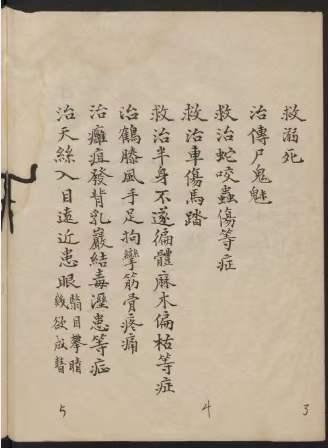 救溺死
治傳尸鬼魅
救治蛇咬蟲傷等症
救治車傷馬踏
救治半身不遂徧體麻木偏枯等症
治鶴膝風手足拘攣筋骨疼痛
治癰疽發背乳巖結毒溼患等症
治天絲入目遠近患眼翳目攀睛
幾欲成瞽
3
4
5